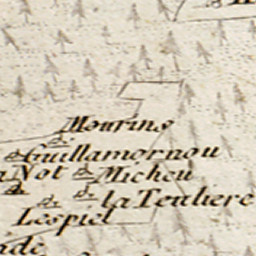 Mourins
Guillamornou
Not Micheu
la Teuliere
Lespiet